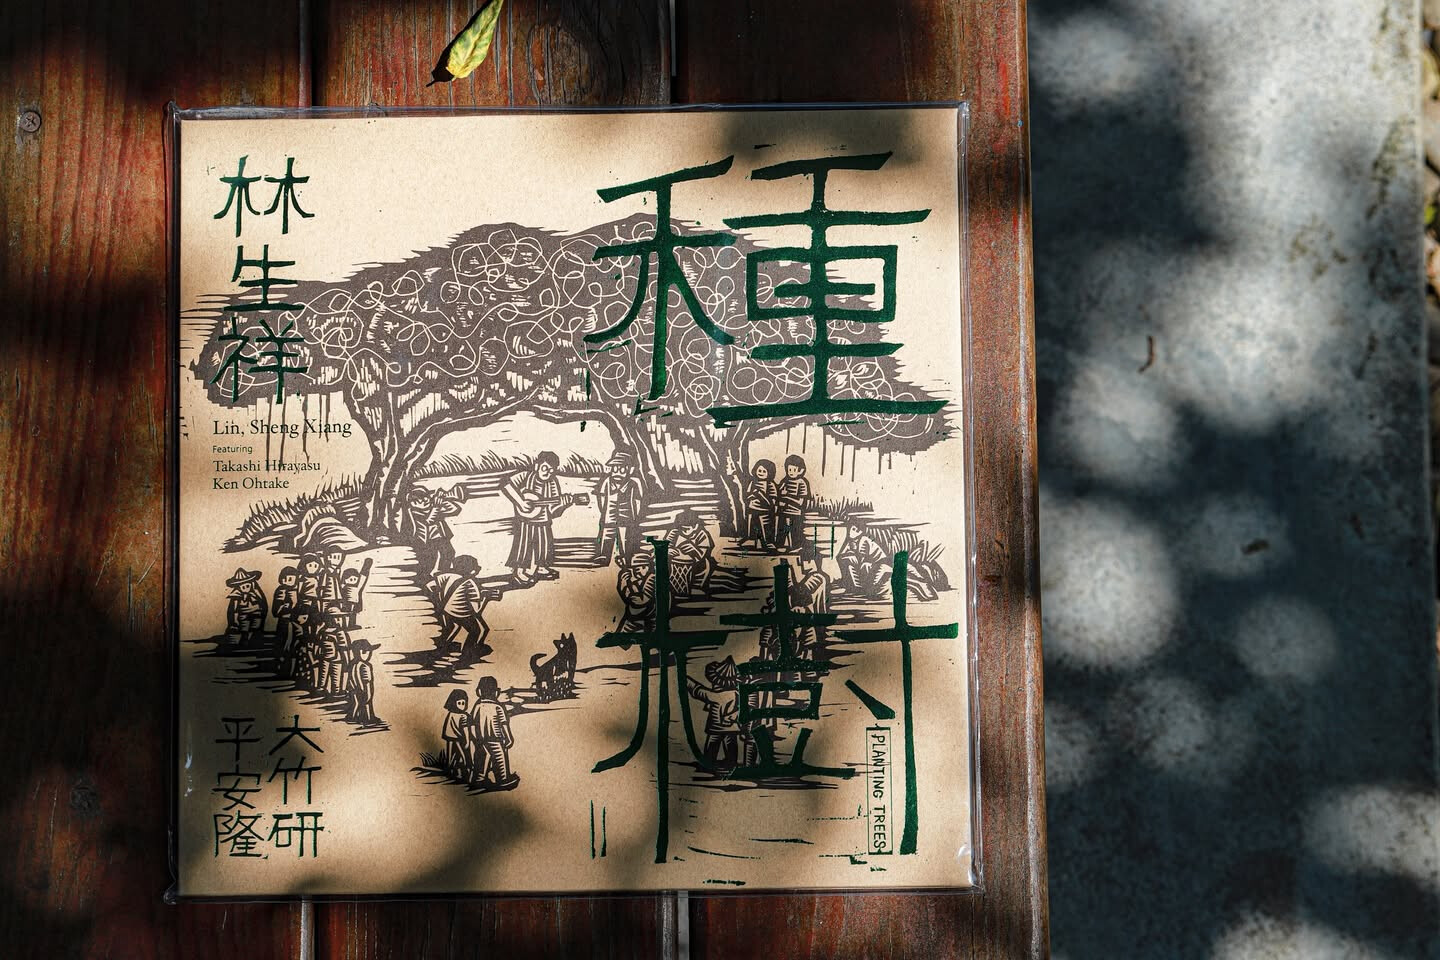 種樹
林生祥
Lin, Sheng Xiang
Featuring
Takashi Hirayasu
Ken Ohtake
大竹研
平安隆
PLANTING TREES